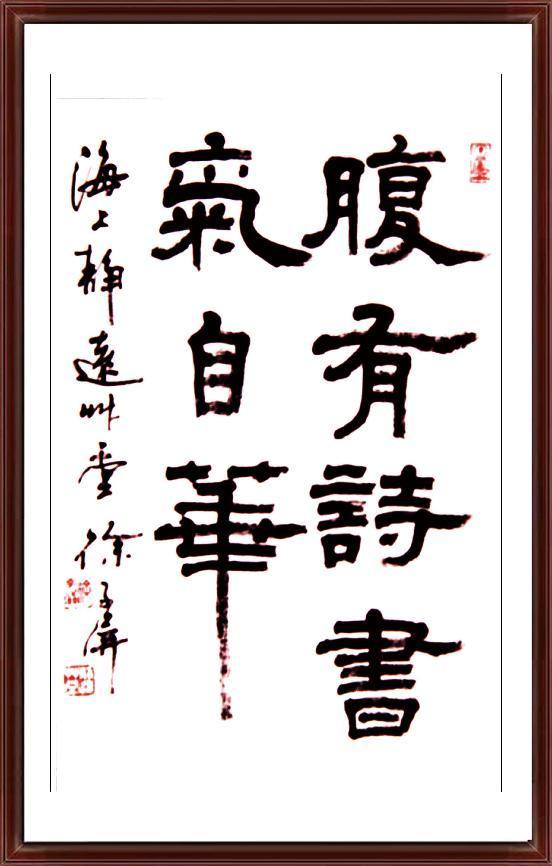 腹有詩書
氣自華
海上靜遠艸堂 徐孟